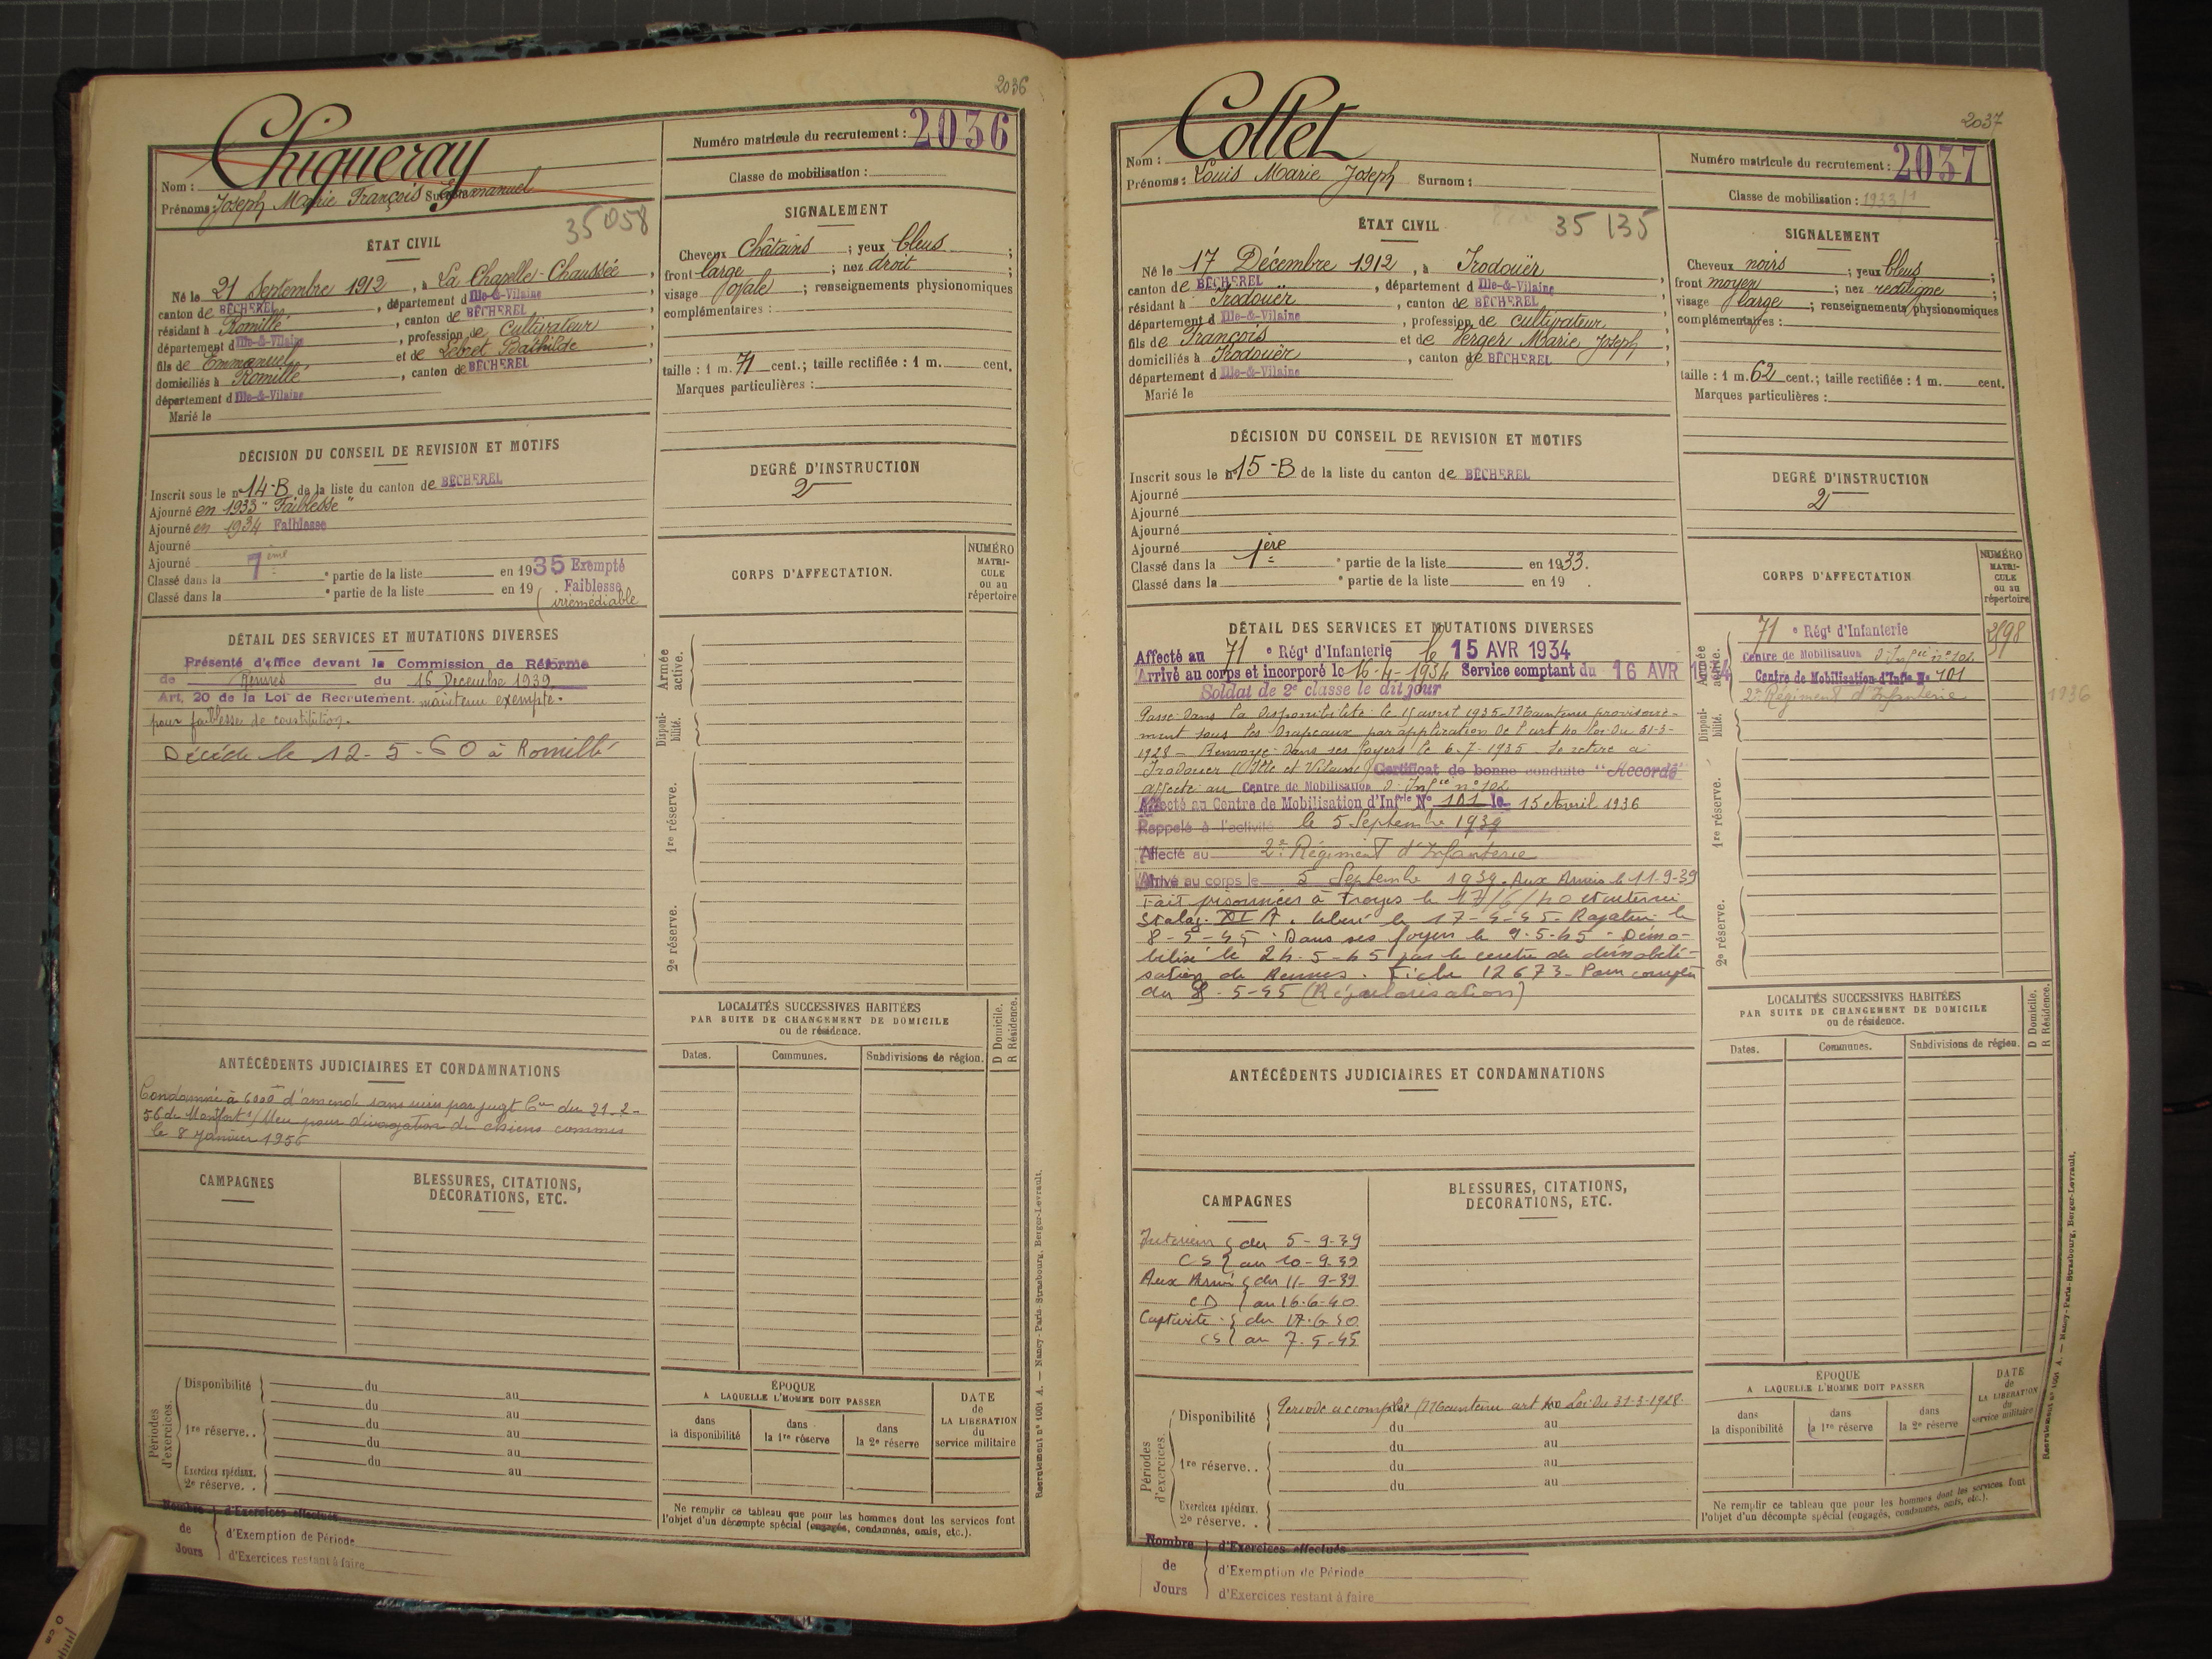 2036
Chiqueray
Nom :
Prénoms : Joseph Marie François Emmanuel Surnom :
35058
ÉTAT CIVIL
Né le 21 Septembre 1912, à La Chapelle-Chaussée,
canton de BÉCHEREL, département d Ille-&-Vilaine
résidant à Romillé, canton de BÉCHEREL,
département d Ille-&-Vilaine, profession de Cultivateur
fils de Emmanuel et de Bathilde,
domiciliés à Romillé, canton de BÉCHEREL,
département d Ille-&-Vilaine
Marié le
DÉCISION DU CONSEIL DE REVISION ET MOTIFS
Inscrit sous le n° 14-B de la liste du canton de BÉCHEREL
Ajourné en 1933 "Faiblesse"
Ajourné en 1934 Faiblesse
Ajourné
Ajourné
Classé dans la 7ème partie de la liste en 1935 Exempté
Classé dans la e partie de la liste en 19 Faiblesse
irrémédiable
DÉTAIL DES SERVICES ET MUTATIONS DIVERSES
Présenté d'office devant la Commission de Réforme
de Rennes du 16 Decembre 1939
Art. 20 de la Loi de Recrutement. maintenu exempté.
pour faiblesse de constitution.
Décédé le 12-5-60 à Romillé
ANTÉCÉDENTS JUDICIAIRES ET CONDAMNATIONS
Condamné à 6000 d'amende sans par jugt du 21-2-
56 de Montfort s/Meu pour divagation de chiens commis
le 8 Janvier 1956
CAMPAGNES
BLESSURES, CITATIONS,
DÉCORATIONS, ETC.
Périodes d'exercices.
Disponibilité du au
du au
1re réserve.. du au
du au
du au
Exercices spéciaux. au
2e réserve. .
Nombre d'Exercices effectués
de d'Exemption de Période
Jours d'Exercices restant à faire
Numéro matricule du recrutement : 2036
Classe de mobilisation :
SIGNALEMENT
Cheveux Châtains ; yeux bleus ;
front large ; nez droit ;
visage ovale ; renseignements physionomiques
complémentaires :
taille : 1 m. 71 cent.; taille rectifiée : 1 m. cent.
Marques particulières :
DEGRÉ D'INSTRUCTION
2
CORPS D'AFFECTATION.
NUMÉRO
MATRI-
CULE
ou au
répertoire
Armée active.
Disponi-bilité.
1re réserve.
2e réserve.
LOCALITÉS SUCCESSIVES HABITÉES
PAR SUITE DE CHANGEMENT DE DOMICILE
ou de résidence.
D Domicile.
R Résidence.
Dates. Communes. Subdivisions de région.
ÉPOQUE
A LAQUELLE L'HOMME DOIT PASSER
dans la disponibilité
dans la 1re réserve
dans la 2e réserve
DATE
de
LA LIBÉRATION
du
service militaire
Ne remplir ce tableau que pour les hommes dont les services font
l'objet d'un décompte spécial (engagés, condamnés, omis, etc.).
Recrutement n° 1001 A. — Nancy-Paris-Strasbourg, Berger-Levrault.
2037
Collet
Nom :
Prénoms : Louis Marie Joseph Surnom :
35135
ÉTAT CIVIL
Né le 17 Décembre 1912, à Irodouër
canton de BÉCHEREL, département d Ille-&-Vilaine,
résidant à Irodouër, canton de BÉCHEREL,
département d Ille-&-Vilaine, profession de cultivateur
fils de François et de Verger Marie Joseph,
domiciliés à Irodouër, canton de BÉCHEREL,
département d Ille-&-Vilaine
Marié le
DÉCISION DU CONSEIL DE REVISION ET MOTIFS
Inscrit sous le n° 15-B de la liste du canton de BÉCHEREL
Ajourné
Ajourné
Ajourné
Ajourné
Classé dans la 1ère partie de la liste en 1933.
Classé dans la e partie de la liste en 19 .
DÉTAIL DES SERVICES ET MUTATIONS DIVERSES
Affecté au 71e Régt d'Infanterie le 15 AVR 1934
Arrivé au corps et incorporé le 16-4-1934 Service comptant du 16 AVR 1934
Soldat de 2e classe le dit jour
Passé dans la disponibilité le 15 avril 1935. Maintenu provisoire-
ment sous les drapeaux par application de l'art 40 loi du 31-3-
1928 - Renvoyé dans ses foyers le 6.7-1935. Se retire à
Irodouer (Ille et Vilaine) Certificat de bonne conduite "Accordé"
affecté au Centre de Mobilisation d'Infie n° 101
Affecté au Centre de Mobilisation d'Infrie N° 101 le 15 Avril 1936
Rappelé à l'activité le 5 Septembre 1939
Affecté au 2e Régiment d'Infanterie
Arrivé au corps le 5 Septembre 1939. Aux Armées le 11-9-39
Fait prisonnier à Troyes le 17/6/40 et interné
Stalag XI A. libéré le 17-4-45. Rapatrié le
8-5-45. Dans ses foyers le 9-5-45 - Démo-
bilisé le 24-5-45 par le centre de démobili-
sation de Rennes. Fiche 12673 - Pour compter
du 8-5-45 (Régularisation)
ANTÉCÉDENTS JUDICIAIRES ET CONDAMNATIONS
CAMPAGNES
Intérieur du 5-9-39
CS au 10-9-39
Aux Armées du 11-9-39
CD au 16-6-40
Captivité du 17-6-40
CS au 7-5-45
BLESSURES, CITATIONS,
DÉCORATIONS, ETC.
Périodes d'exercices.
Disponibilité Période accomplie (Maintenu art 40 Loi du 31-3-1928.
du au
1re réserve.. du au
du au
du au
Exercices spéciaux.
2e réserve. .
Nombre d'Exercices effectués
de d'Exemption de Période
Jours d'Exercices restant à faire
Numéro matricule du recrutement : 2037
Classe de mobilisation : 1933/1
SIGNALEMENT
Cheveux noirs ; yeux bleus ;
front moyen ; nez rectiligne ;
visage large ; renseignements physionomiques
complémentaires :
taille : 1 m. 62 cent.; taille rectifiée : 1 m. cent.
Marques particulières :
DEGRÉ D'INSTRUCTION
2
CORPS D'AFFECTATION
NUMÉRO
MATRI-
CULE
ou au
répertoire
71e Régt d'Infanterie
Centre de Mobilisation d'Infie n° 101
Centre de Mobilisation d'Infie N° 101
2e Régiment d'Infanterie 1936
Armée active.
Disponi-bilité.
1re réserve.
2e réserve.
LOCALITÉS SUCCESSIVES HABITÉES
PAR SUITE DE CHANGEMENT DE DOMICILE
ou de résidence.
D Domicile.
R Résidence.
Dates. Communes. Subdivisions de région.
ÉPOQUE
A LAQUELLE L'HOMME DOIT PASSER
dans la disponibilité
dans la 1re réserve
dans la 2e réserve
DATE
de
LA LIBÉRATION
du
service militaire
Ne remplir ce tableau que pour les hommes dont les services font
l'objet d'un décompte spécial (engagés, condamnés, omis, etc.).
Recrutement n° 1001 A. — Nancy-Paris-Strasbourg, Berger-Levrault.